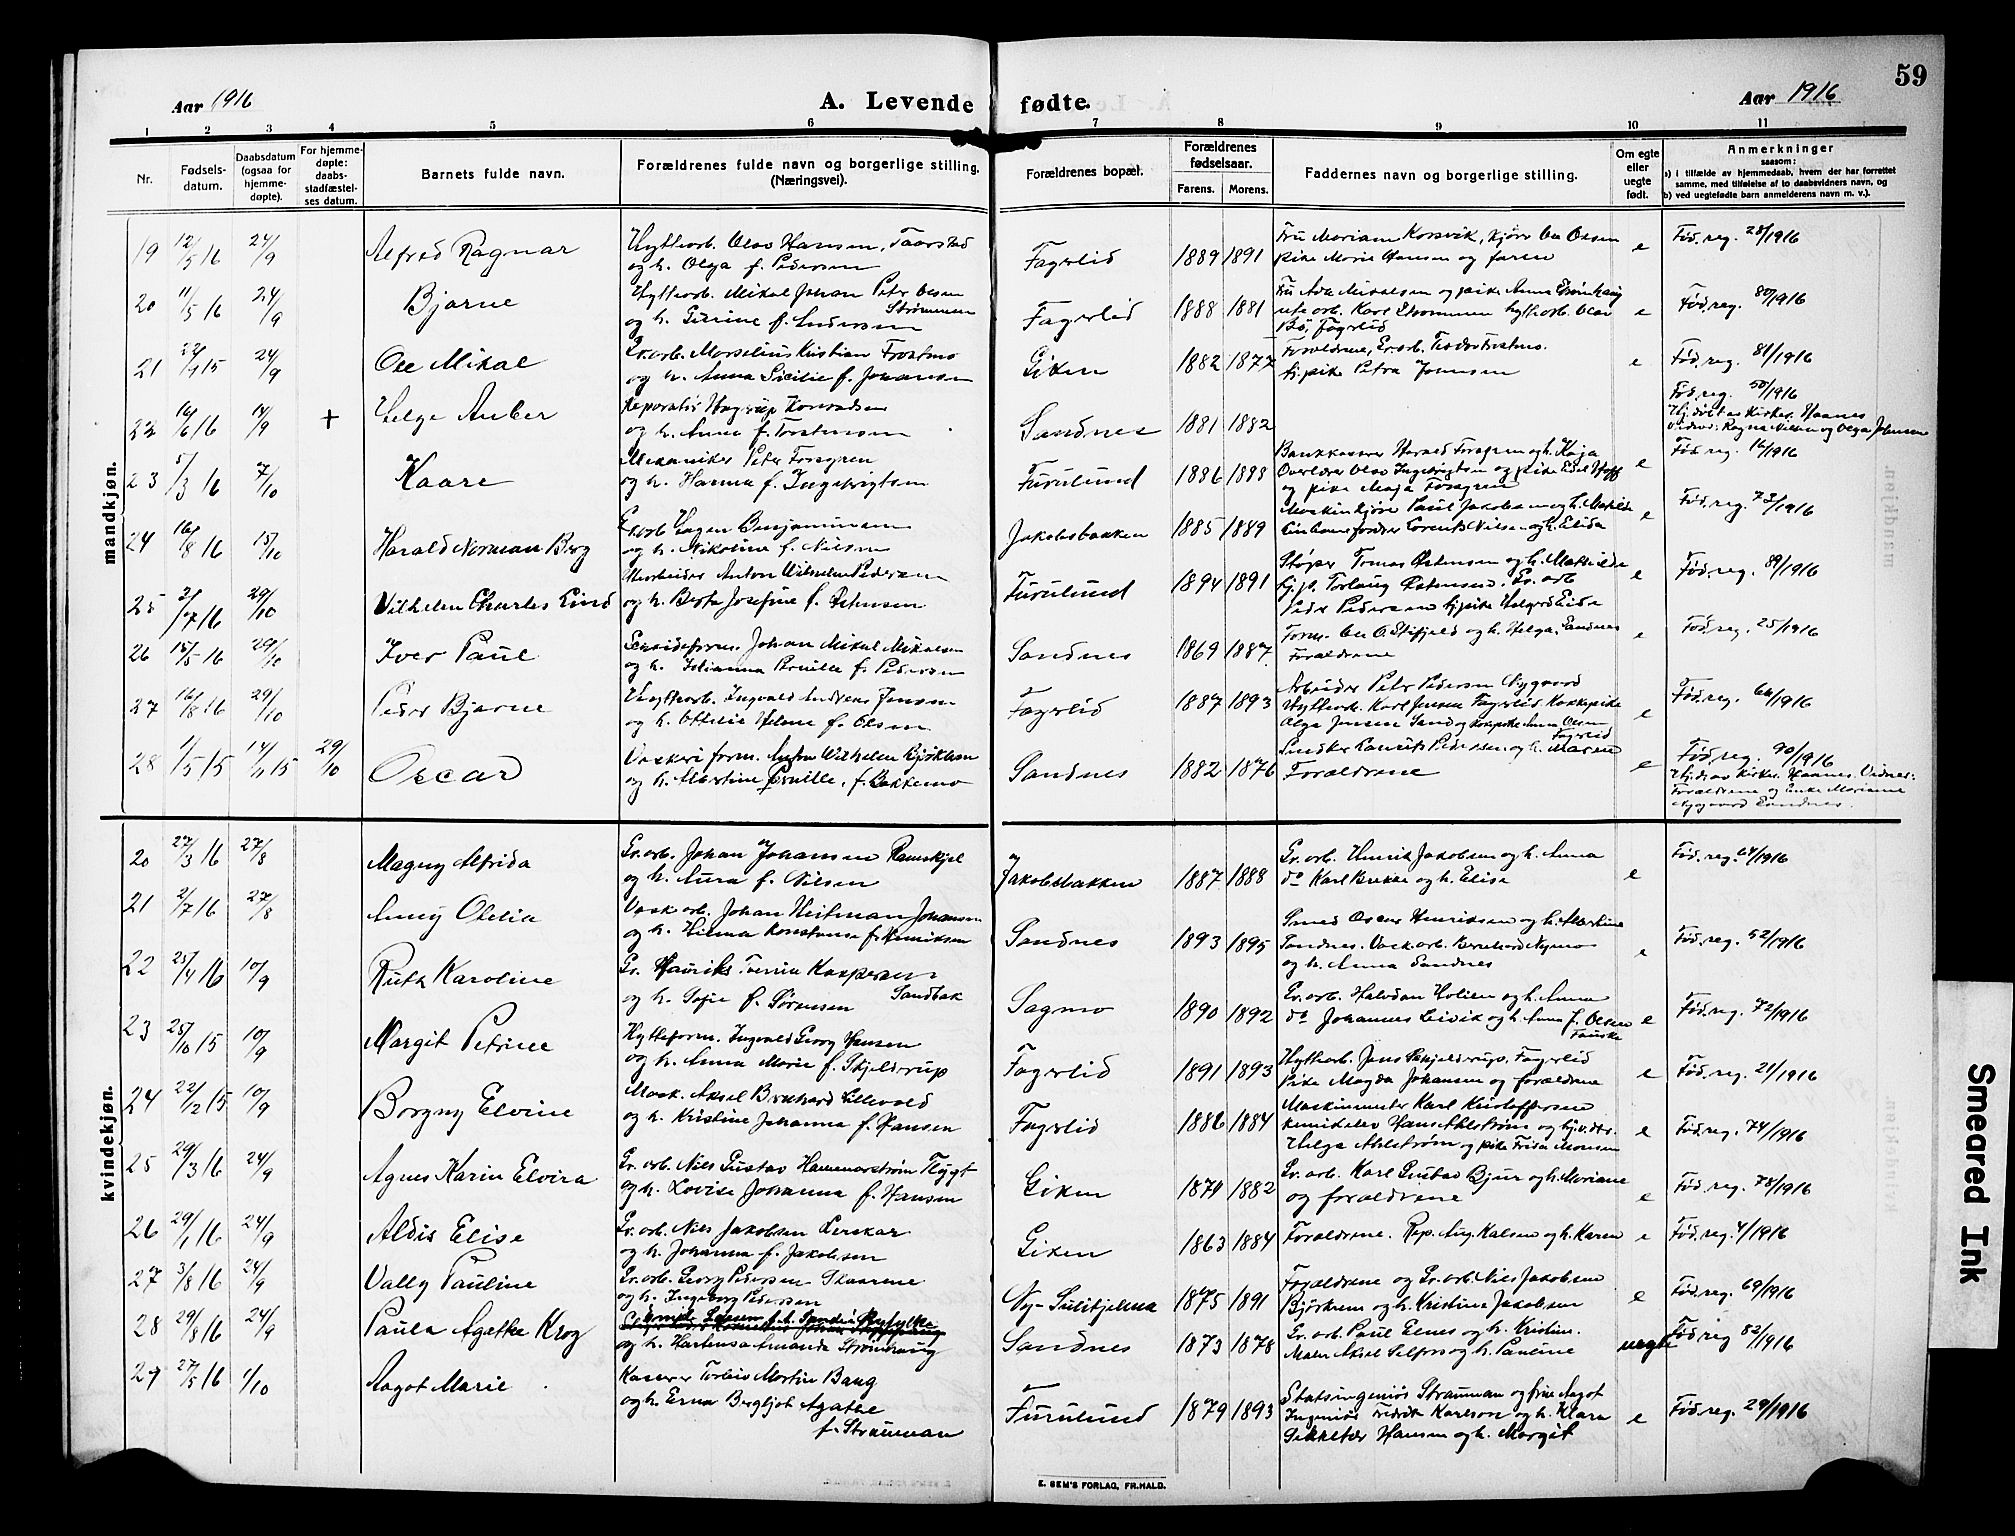 59
Aar 1916 A. Levende fødte. Aar 1916
1 2 3 4 5 6 7 8 9 10 11
Nr.
Fødsels-
datum.
Daabsdatum
(ogsaa for
hjemme-
døpte).
For hjemme-
døpte:
daabs-
stadfæstel-
ses datum.
Barnets fulde navn.
Forældrenes fulde navn og borgerlige stilling.
(Næringsvei).
Forældrenes bopæl.
Forældrenes
fødselsaar.
Farens. Morens.
Faddernes navn og borgerlige stilling.
Om egte
eller
uegte
født.
Anmerkninger
saasom:
a) i tilfælde av hjemmedaab, hvem der har forrettet
samme, med tilføielse af to daabsvidners navn, og
b) ved uegtefødte barn anmelderens navn m. v.).
mandkjøn.
19 12/5 16 24/9 Alfred Ragnar
Hytteorb. Olav Hansen, Taarstad
og h. Olga f. Pedersen
Fagerlid 1889 1891
pike Marie Hansen og faren
e Fød. reg. 28/1916
20 11/5 16 24/9 Bjarne
Hytteorb. Mikal Johan Petr Olsen
Strømmen
og h. Gurine f. Andersen
Fagerlid 1888 1881
Bø, Fagerlid
e Fød. reg. 80/1916
21 15 24/9 Ole Mikal
Gr. orb. Marselius Kristian Trostmo
og h. Anna Sicilie f. Johansen
Giken 1882 1877
hj. pike Petra Johnsen
e Fød. reg. 81/1916
22 16/6 16 14/9 + Helge Auber
Reparatør Hagrup Konradsen
og h. Anna f. Torstensen
Sandnes 1881 1882
Fød. reg. 50/1916
Hj. døbt av Kirkes. Haanes
Vidner: Ragna Nilsen og Olga Johnsen
23 5/3 16 7/10 Kaare
Mekaniker Peter Forsgren
og h. Harma f. Ingebrigtsen
Furulund 1886 1888
Bankkaserer Harald Forsgren og h. Kaja
Overlærer Olav Ingebrigtsen og pike Edel Hoff
og pike Maja Forsgren
e Fød. reg. 16/1916
24 16/8 16 15/10 Harald Norman Berg
Gr. orb Hagen Benjaminsen
og h. Nikoline f. Nilsen
Jakobsbakken 1885 1889
Maskinkjører Paul Jakobsen og h. Matilde
Lorents Nilsen og h. Elida
e Fød. reg. 73/1916
25 2/7 16 29/10 Vilhelm Charles Lind
Arbeider Anton Wilhelm Pedersen
og h. Berta Josefine f. Østensen
Furulund 1894 1891
Støper Tomas Østensen og h. Mathilde
hj. p. Torlaug Østensen. Gr. orb
Peder Pedersen hj. pike Helgerd Eide
e Fød. reg. 89/1916
26 15/5 16 29/10 Iver Paul
Johan Mikal Mikalsen
og h. Julianna Pernille f. Pedersen
Sandnes 1869 1887
Form. Ole O. Stifjeld og h. Helga. Sandnes
Forældrene
e Fød. reg. 25/1916
27 16/8 16 29/10 Peder Bjarne
Hytteorb. Ingvald Andreas Jensen
og h. Ottilie Helene f. Olsen
Fagerlid 1887 1893
Arbeider Petr Pedersen Nygaard
Hytteorb. Karl Jensen Fagerlid. Kokkepike
Olga Jensen Sand og kokkepike Anna Olsen
Fagerlid
e Fød. reg. 66/1916
28 1/5 15 14/11 15 29/10 Oscar
Vaskeri form. Anton Wilhelm Bjørklund
og h. Martine Pernille, f. Bakkemo
Sandnes 1882 1876
Snedker Laurits Pedersen og h. Maren
Forældrene
e Fød. reg. 90/1916
Hj. d. av kirkes. Haanes. Vidner:
Forældrene og Enke Mariane
Nygaard Sandnes.
kvindekjøn.
20 27/3 16 27/8 Magny Alfrida
Gr. orb. Johan Johansen Ramskjel
og h. Aura f. Nilsen
Jakobsbakken 1887 1888
Gr. orb. Henrik Jakobsen og h. Anna
do Karl Brekke og h. Elise
e Fød. reg. 64/1916
21 2/7 16 27/8 Anny Otelie
Vask orb. Johan Heitman Johansen
og h. Hilma Konstanse f. Henriksen
Sandnes 1893 1895
Smed Oscar Henriksen og h. Martine
Sandnes. Vask. orb. Bernhard Nymo
og h. Anna Sandnes
e Fød. reg. 52/1916
22 25/4 16 10/9 Ruth Karoline
Gr. Hauriks Tomin Kaspersen
Sandbak
og h. Sofie f. Sørensen
Sagmo 1890 1892
Gr. orb. Halvdan Holien og h. Anna
do Johannes Leivik og h. Anna f. Olsen
Fauske
e Fød. reg. 72/1916
23 25/10 15 10/9 Margit Petrine
Hytteform. Ingvald Georg Hansen
og h. Anna Marie f. Skjeldrup
Fagerlid 1891 1893
Hytteorb. Jens Skjeldrup, Fagerlid
Pike Magda Johansen og forældrene
e Fød. reg. 21/1916
24 22/12 15 10/9 Borgny Elvine
Mask. Aksel Bernhard Lillevold
og h. Kristine Johanna f. Hansen
Fagerlid 1886 1884
Maskinmester Karl Kristoffersen
kemikelev Hans Ahlstrøm og
Helga Ahlstrøm og pike Frida Monsen
e Fød. reg. 74/1916
25 29/3 16 24/9 Agnes Karin Elvira
Gr. orb. Niels Gustav Hammarstrøm Flygt
og h. Lovise Johanna f. Hansen
Giken 1874 1882
Gr. orb. Karl Gustav Bjur og h. Mariane
og forældrene
e Fød. reg. 78/1916
26 29/1 16 24/9 Aldis Elise
Gr. orb. Niels Jakobsen Lerskar
og h. Johanna f. Jakobsen
Giken 1863 1884
Forældrene. Rep. Aug. Kalsen og h. Karen
e Fød. reg. 4/1916
27 3/8 16 24/9 Vally Pauline
Gr. orb. Georg Pedersen Skaarene
og h. Ingeborg Pedersen
Ny-Sulitjelma 1875 1891
Forældrene og Gr. orb. Niels Jakobsen
Bjørkem og h. Kristine Jakobsen
e Fød. reg. 69/1916
28 29/8 16 24/9 Paula Agathe Krog
og h. Hartensa Amanda Strømhaug
Sandnes 1873 1878
Gr. orb. Paul Elnes og h. Kristine.
Maler Aksel Selfors og h. Pauline
uegte Fød reg 82/1916
29 27/5 16 1/10 Aagot Marie
Kaserer Torleis Martin Baug
og h. Erna Bergljot Agathe
f. Strauman
Furulund 1879 1893
Statsingeniør Strauman og frue Aagot
Ingeniør Fredrik Karlson og h. Klara
Sekretær Hansen og h. Margit
e Fød. reg. 29/1916
E. SEM'S FORLAG, FR.HALD.
Smeared Ink